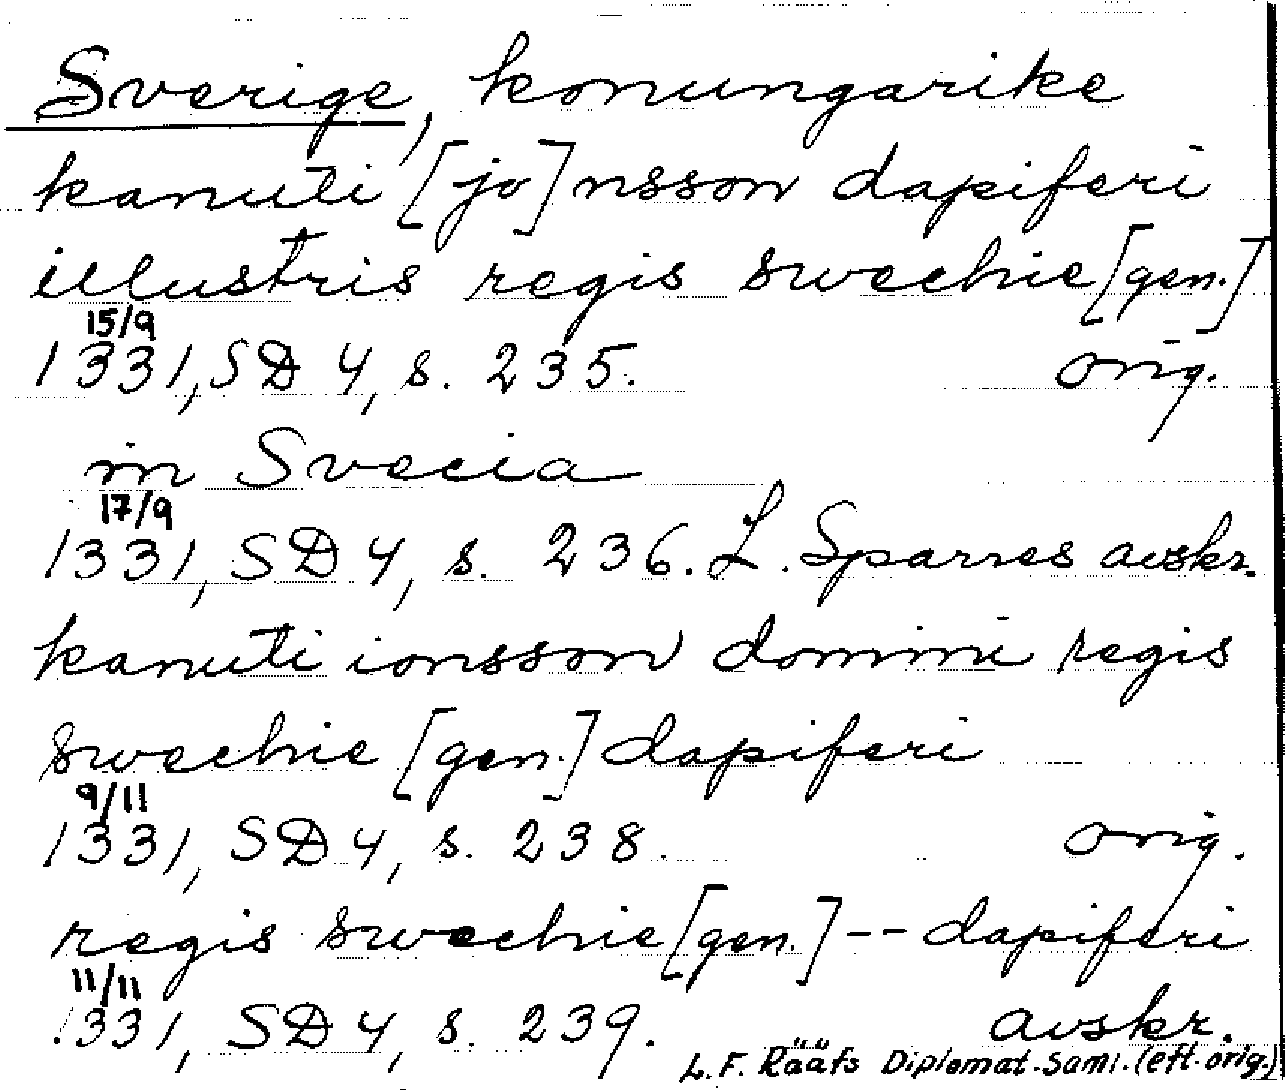 Sverige, konungarike
kanuti [jo]nsson dapiferi
illustris regis swechie [gen.]
15/9
1331, SD 4, s. 235. orig.
in Svecia
17/9
1331, SD 4, s. 236. L. Sparres avskr.
kanuti ionsson domini regis
swechie [gen.] dapiferi
9/11
1331, SD 4, s. 238. orig.
regis swechie [gen.] -- dapiferi
11/11
1331, SD 4, s. 239. avskr.
L. F. Rääfs Diplomat. Saml. (eft. orig.)